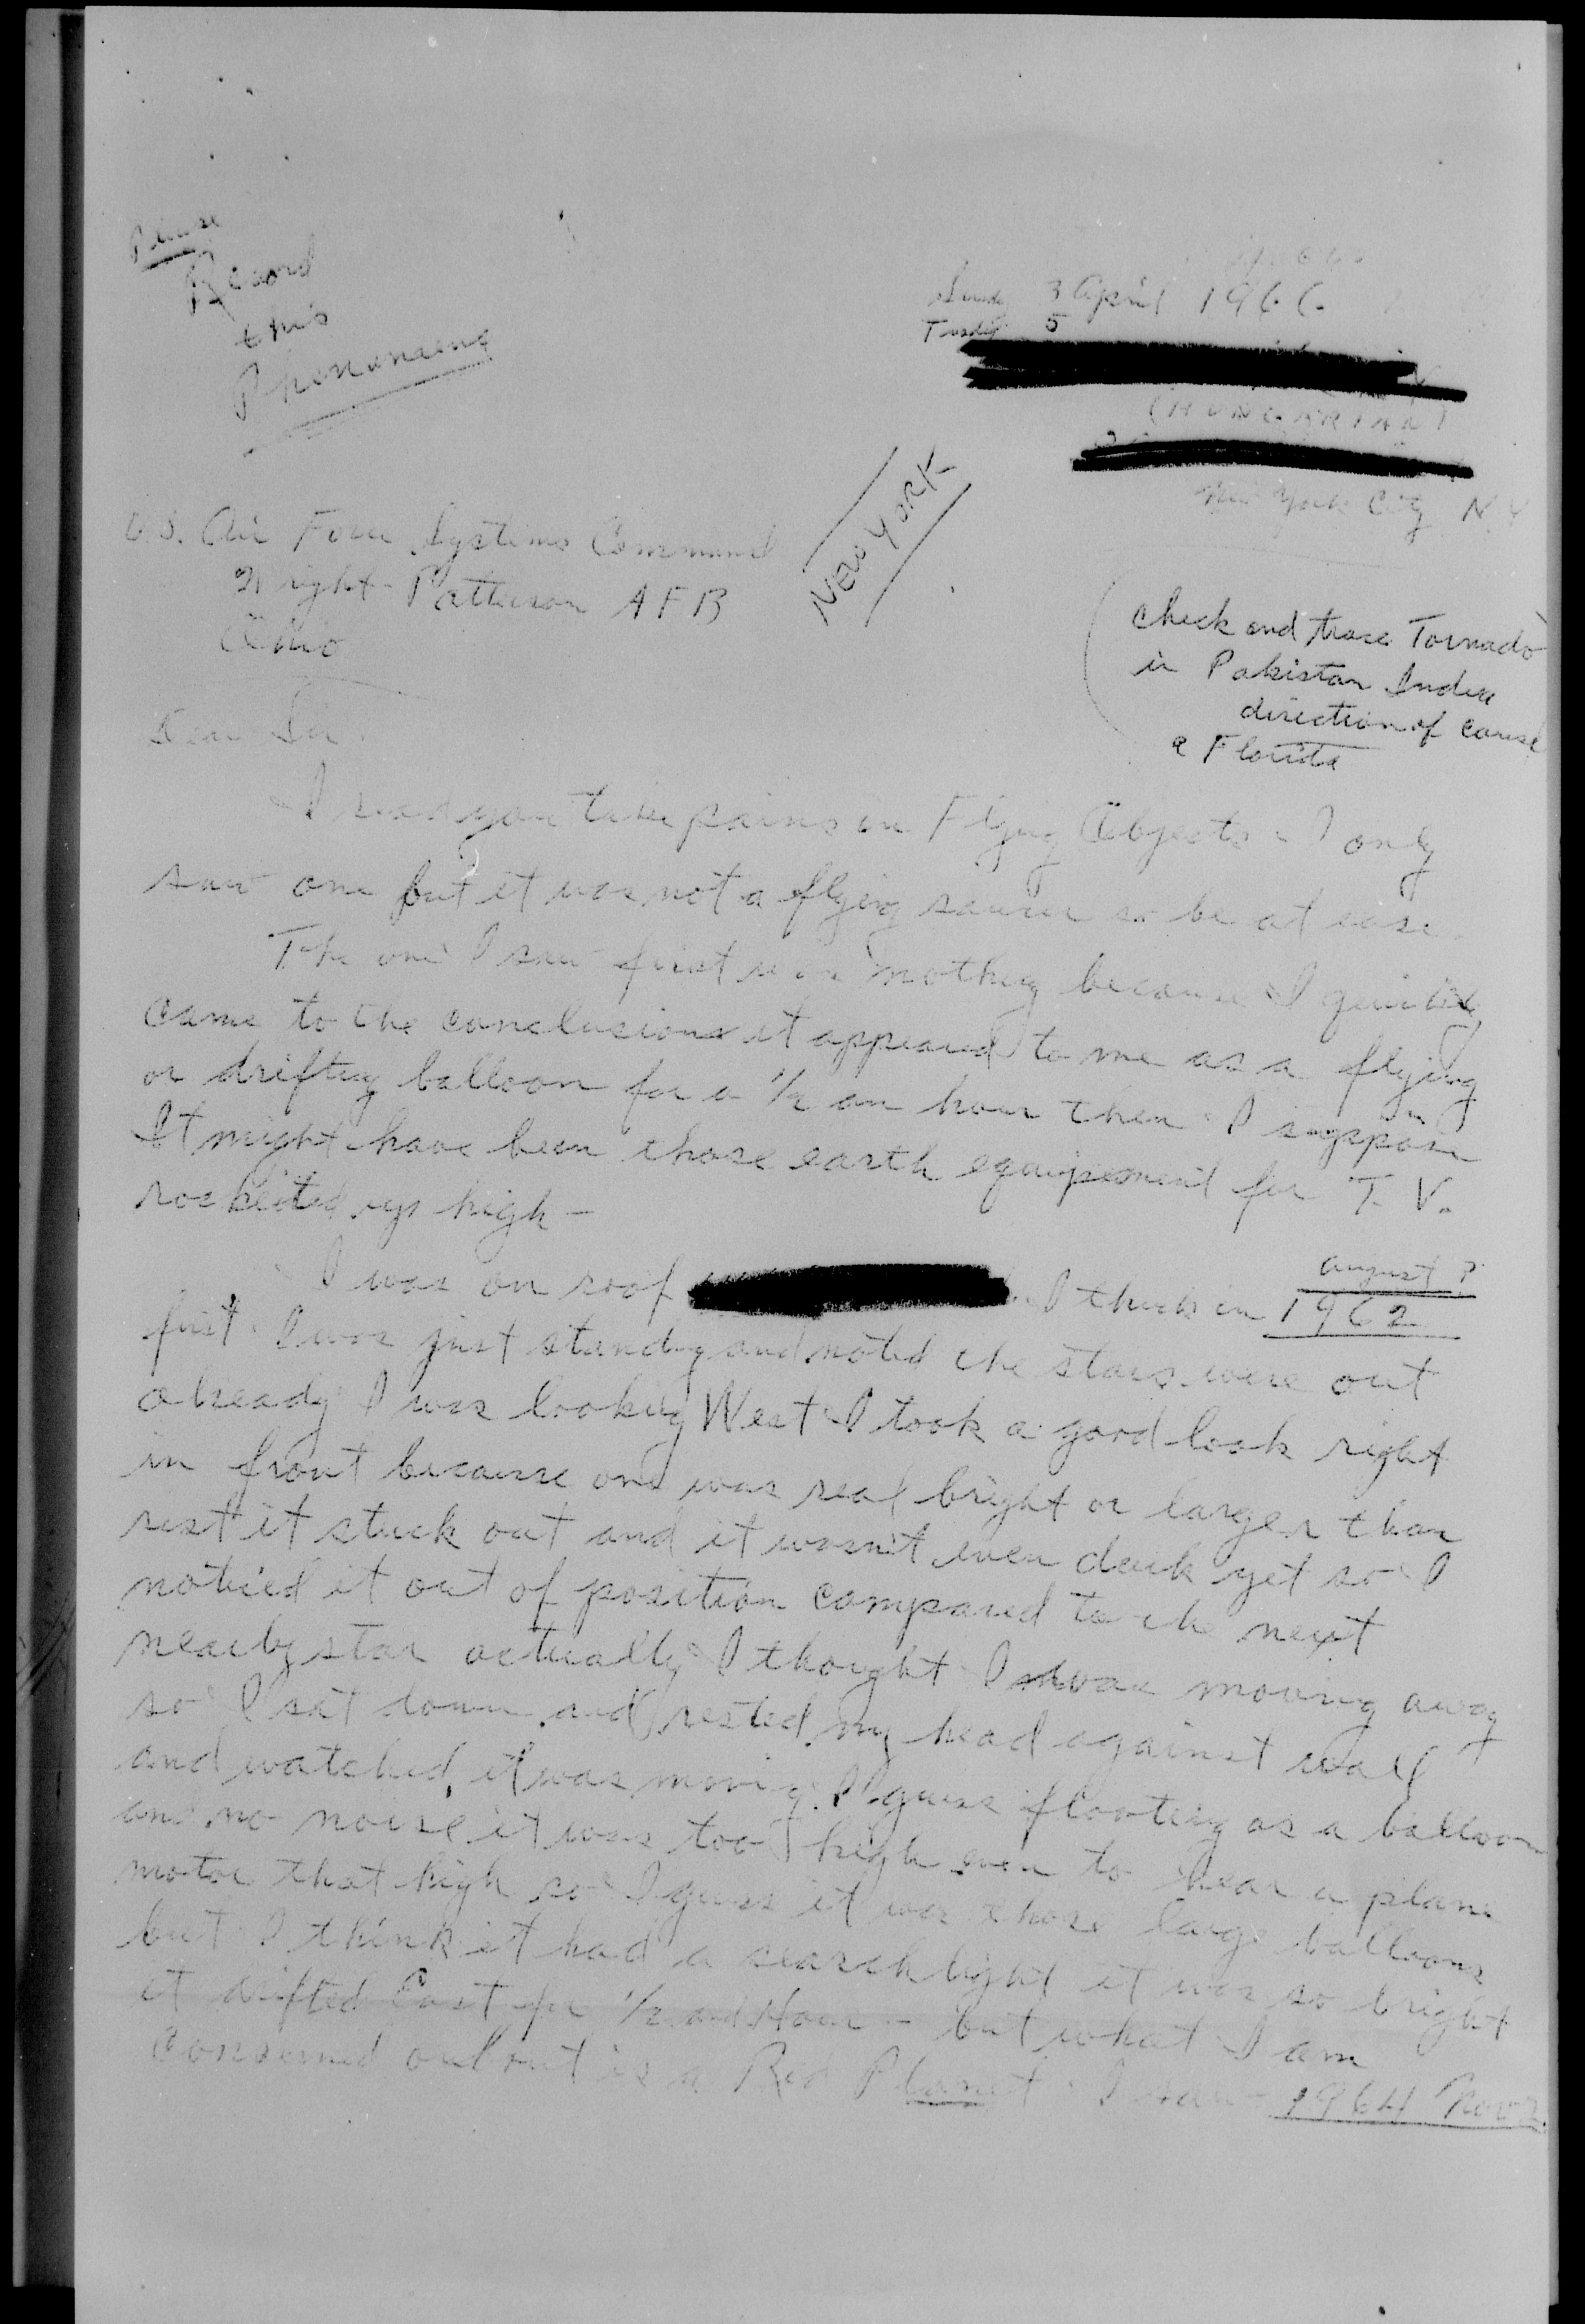 Please
Record
this
Phenomena
3 April 1966
Tuesday 5
(HUNGARIAN)
New York City N.Y
NEW YORK
U.S. Air Force Systems Command
Wright-Patterson AFB
Ohio
Check and trace Tornado
in Pakistan India
direction of
Florida
Dear Sir
I read you take pains in Flying Objects - I only
saw one but it was not a flying saucer so be at ease.
The one I saw first was nothing because I
came to the conclusions it appeared to me as a flying
or drifting balloon for a 1/2 an hour then I suppose
It might have been those earth equipement for T.V.
rocketed up high -
august ?
I was on roof I think in 1962
first I was just standing and noted the stars were out
already I was looking West I took a good look right
in front because one was real bright or larger than
rest it stuck out and it wasn't even dark yet so I
noticed it out of position compared to the next
nearby star actually I thought I was moving away
so I sat down and rested my head against wall
and watched, it was moving. I guess floating as a balloon
and no noise it was too high even to hear a plane
motor that high so I guess it was those large balloons
but I think it had a searchlight it was so bright
it drifted East for 1/2 and Hour - but what I am
concerned about is a Red Planet I saw - 1964 Nov